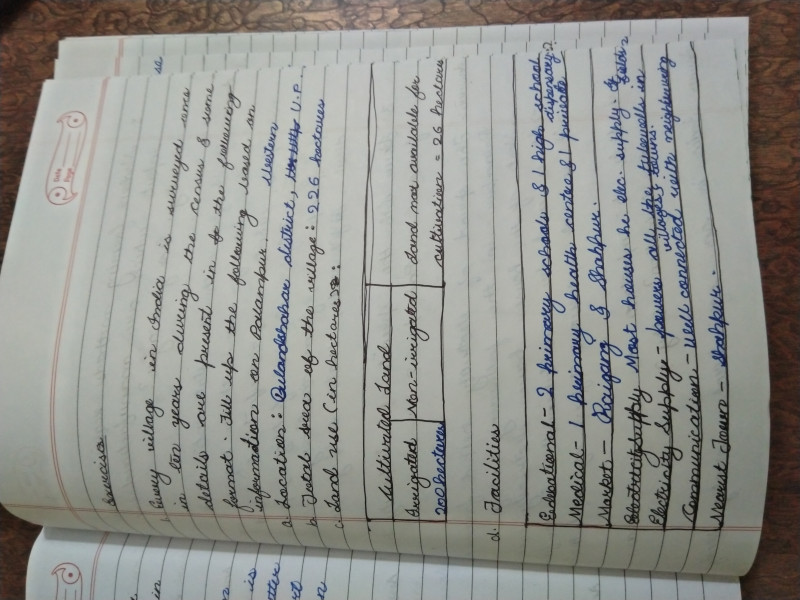 Exercise
1. Every village in India is surveyed once
in ten years during the census & some
details are present in to the following
format. Fill up the following
information on Palampur. based on
a. Location: Bulandshahar district, Western U.P.
b. Total area of the village: 226 hectares
c. Land use (in hectares):
Cultivated Land
Irrigated Non-irrigated Land not available for
200 hectares cultivation = 26 hectares
d. Facilities
Educational - 2 primary schools & 1 high school
Medical - 1 primary health centre & 1 private dispensary
Market - Raiganj & Shahpur.
Most houses hv elec. supply. &
Electricity Supply - powers all the tubewells in fields
Communication - well connected with neighbouring villages & towns.
Nearest Town - Shahpur.
Date
Page
in
is